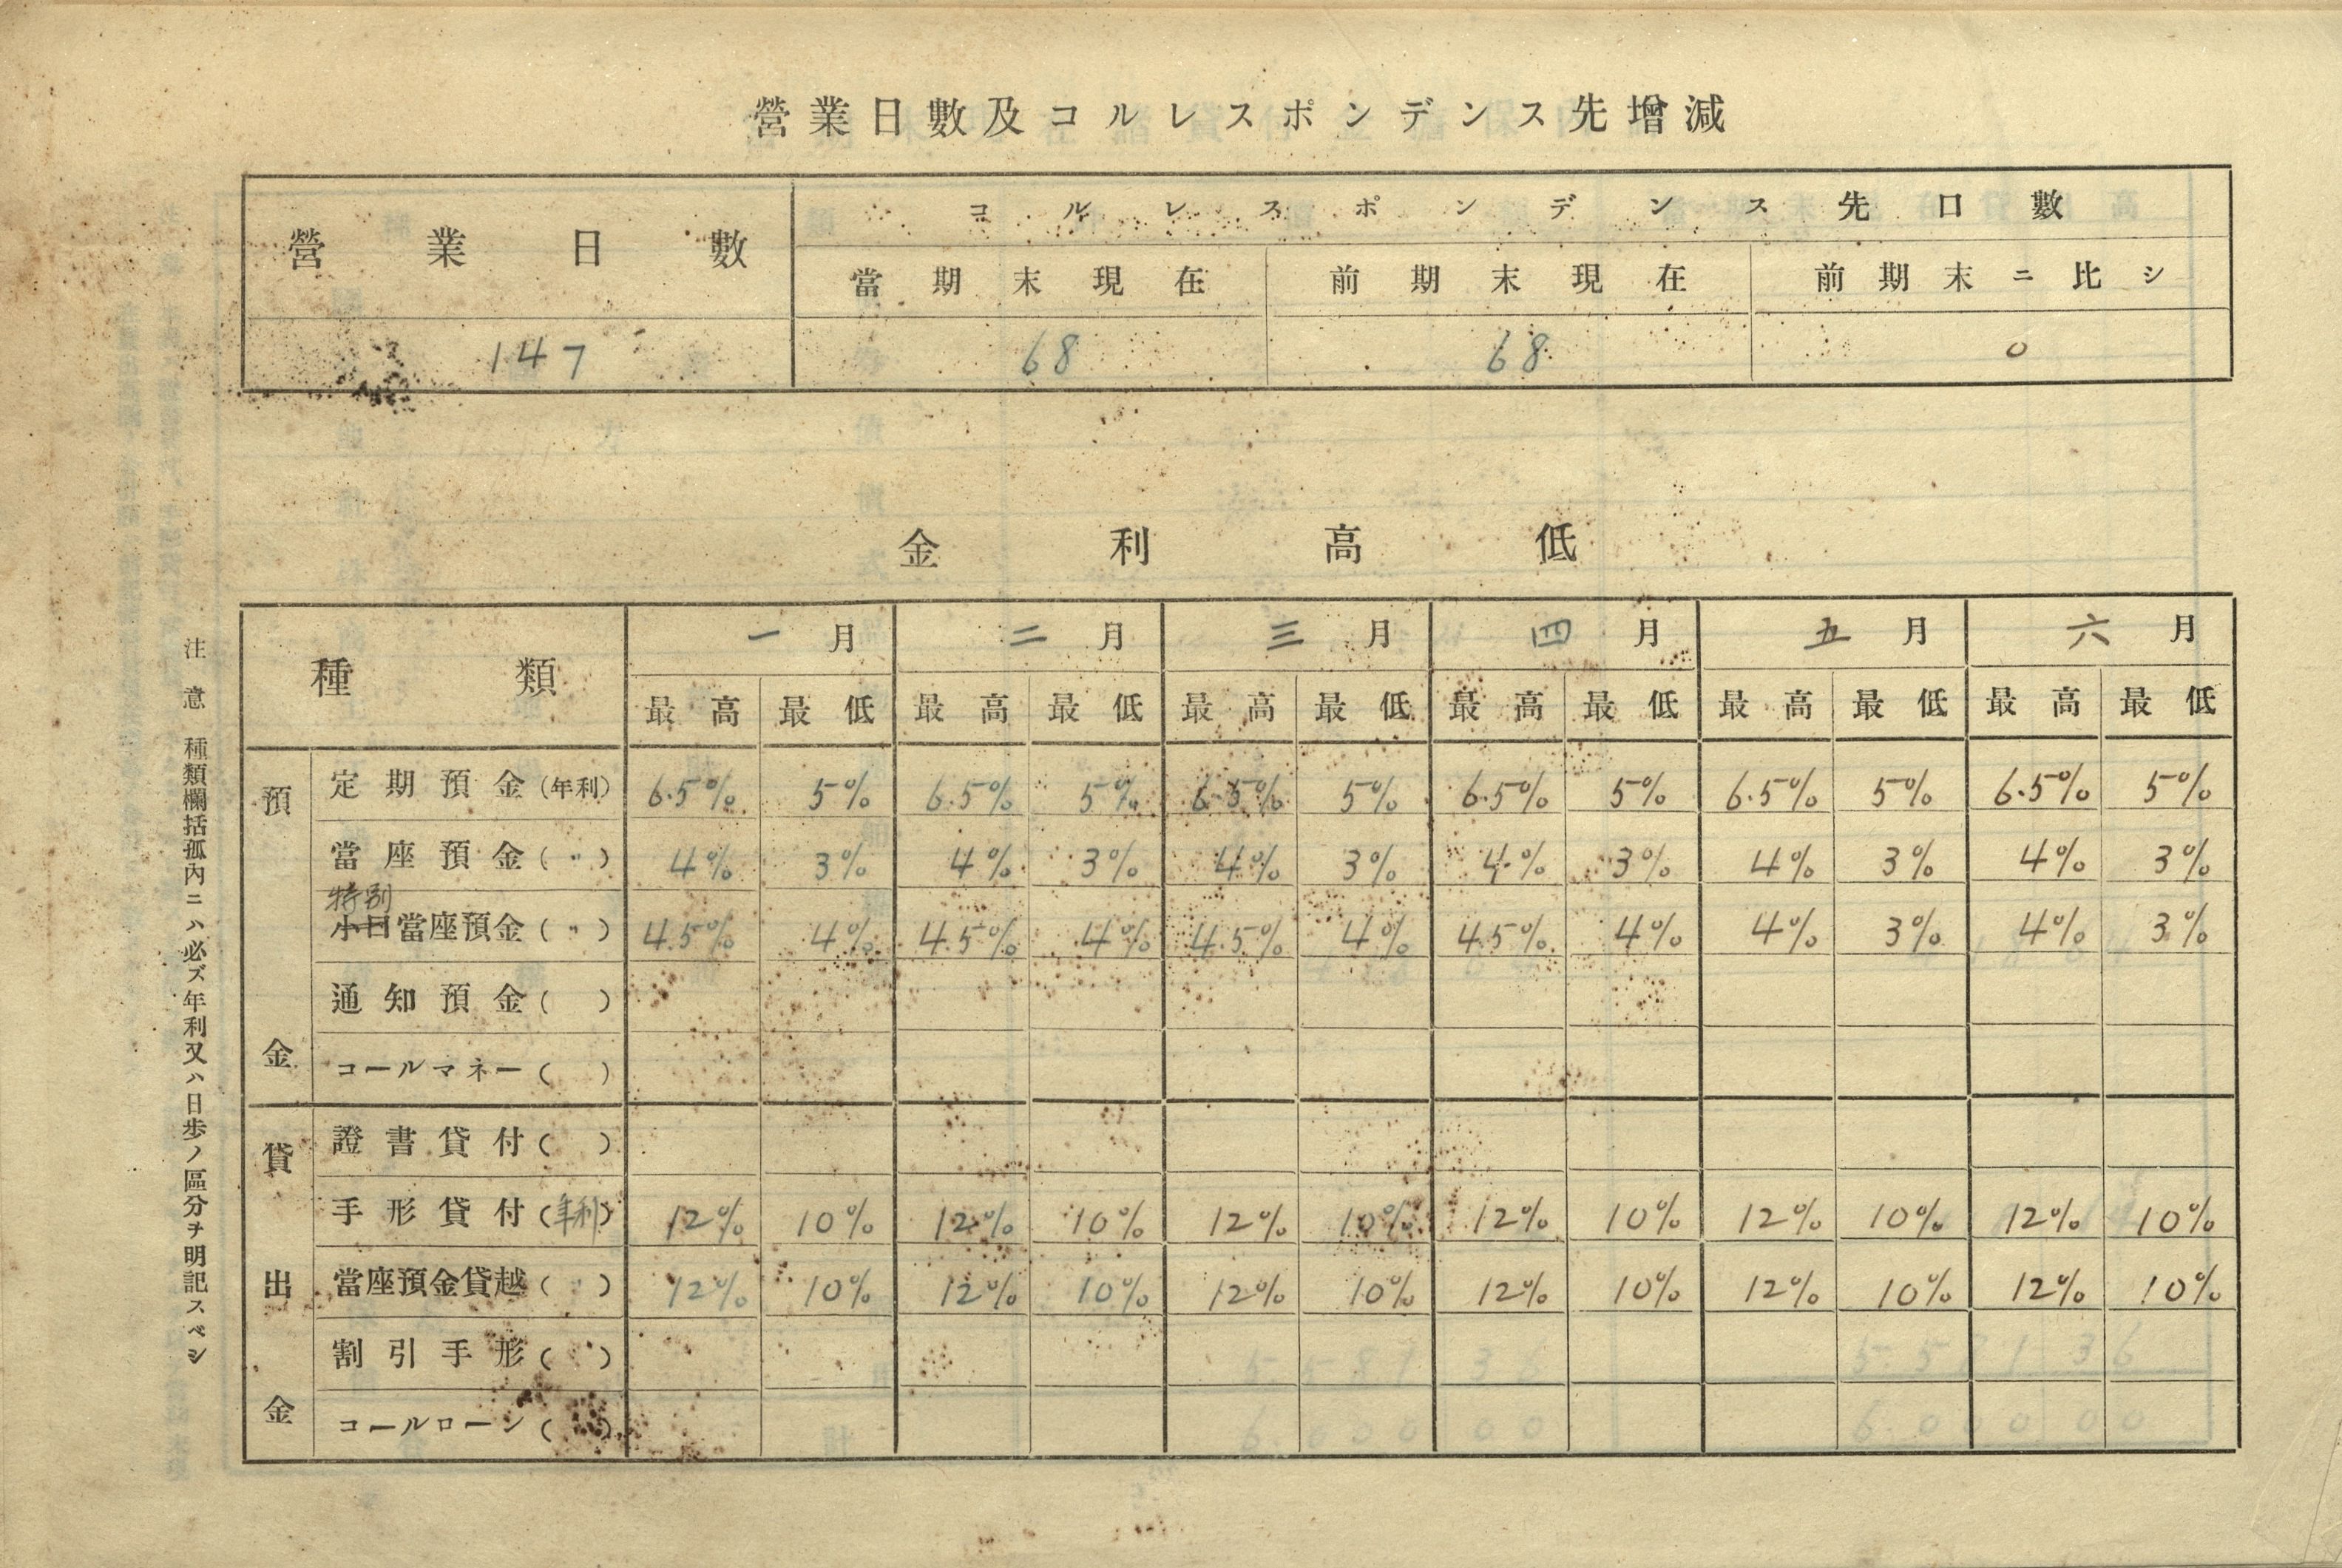 營業日數及コルレスポンデンス先增減
營業日數 コルレスポンデンス先口數
當期末現在 前期末現在 前期末ニ比シ
147 68 68 0
金利高低
種類 一月 二月 三月 四月 五月 六月
最高 最低 最高 最低 最高 最低 最高 最低 最高 最低 最高 最低
預金
定期預金(年利) 6.5% 5% 6.5% 5% 6.5% 5% 6.5% 5% 6.5% 5% 6.5% 5%
當座預金(〃) 4% 3% 4% 3% 4% 3% 4% 3% 4% 3% 4% 3%
特別
小口當座預金(〃) 4.5% 4% 4.5% 4% 4.5% 4% 4.5% 4% 4% 3% 4% 3%
通知預金( )
コールマネー( )
貸出金
證書貸付( )
手形貸付(年利) 12% 10% 12% 10% 12% 10% 12% 10% 12% 10% 12% 10%
當座預金貸越(〃) 12% 10% 12% 10% 12% 10% 12% 10% 12% 10% 12% 10%
割引手形( )
コールローン( )
注意 種類欄括孤內ニハ必ズ年利又ハ日歩ノ區分ヲ明記スベシ